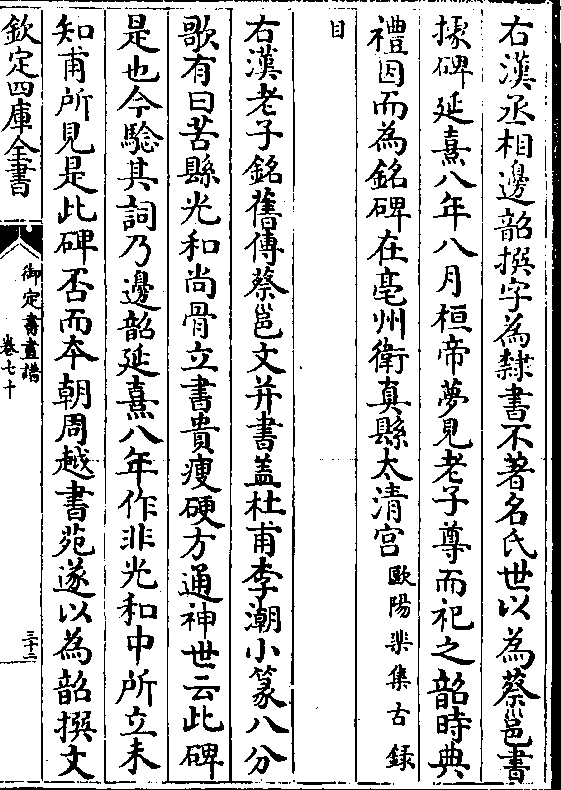 右漢丞相邊韶撰字為隸書不著名氏世以為蔡邕書
據碑延熹八年八月桓帝夢見老子尊而祀之韶時典
禮因而為銘碑在亳州衛真縣太清宫歐陽棐集古録
目
右漢老子銘舊傳蔡邕文并書蓋杜甫李潮小篆八分
歌有曰苦縣光和尚骨立書貴瘦硬方通神世云此碑
是也今驗其詞乃邊韶延熹八年作非光和中所立未
知甫所見是此碑否而本朝周越書苑遂以為韶撰文
欽定四庫全書
御定書畫譜
卷七十
三十二